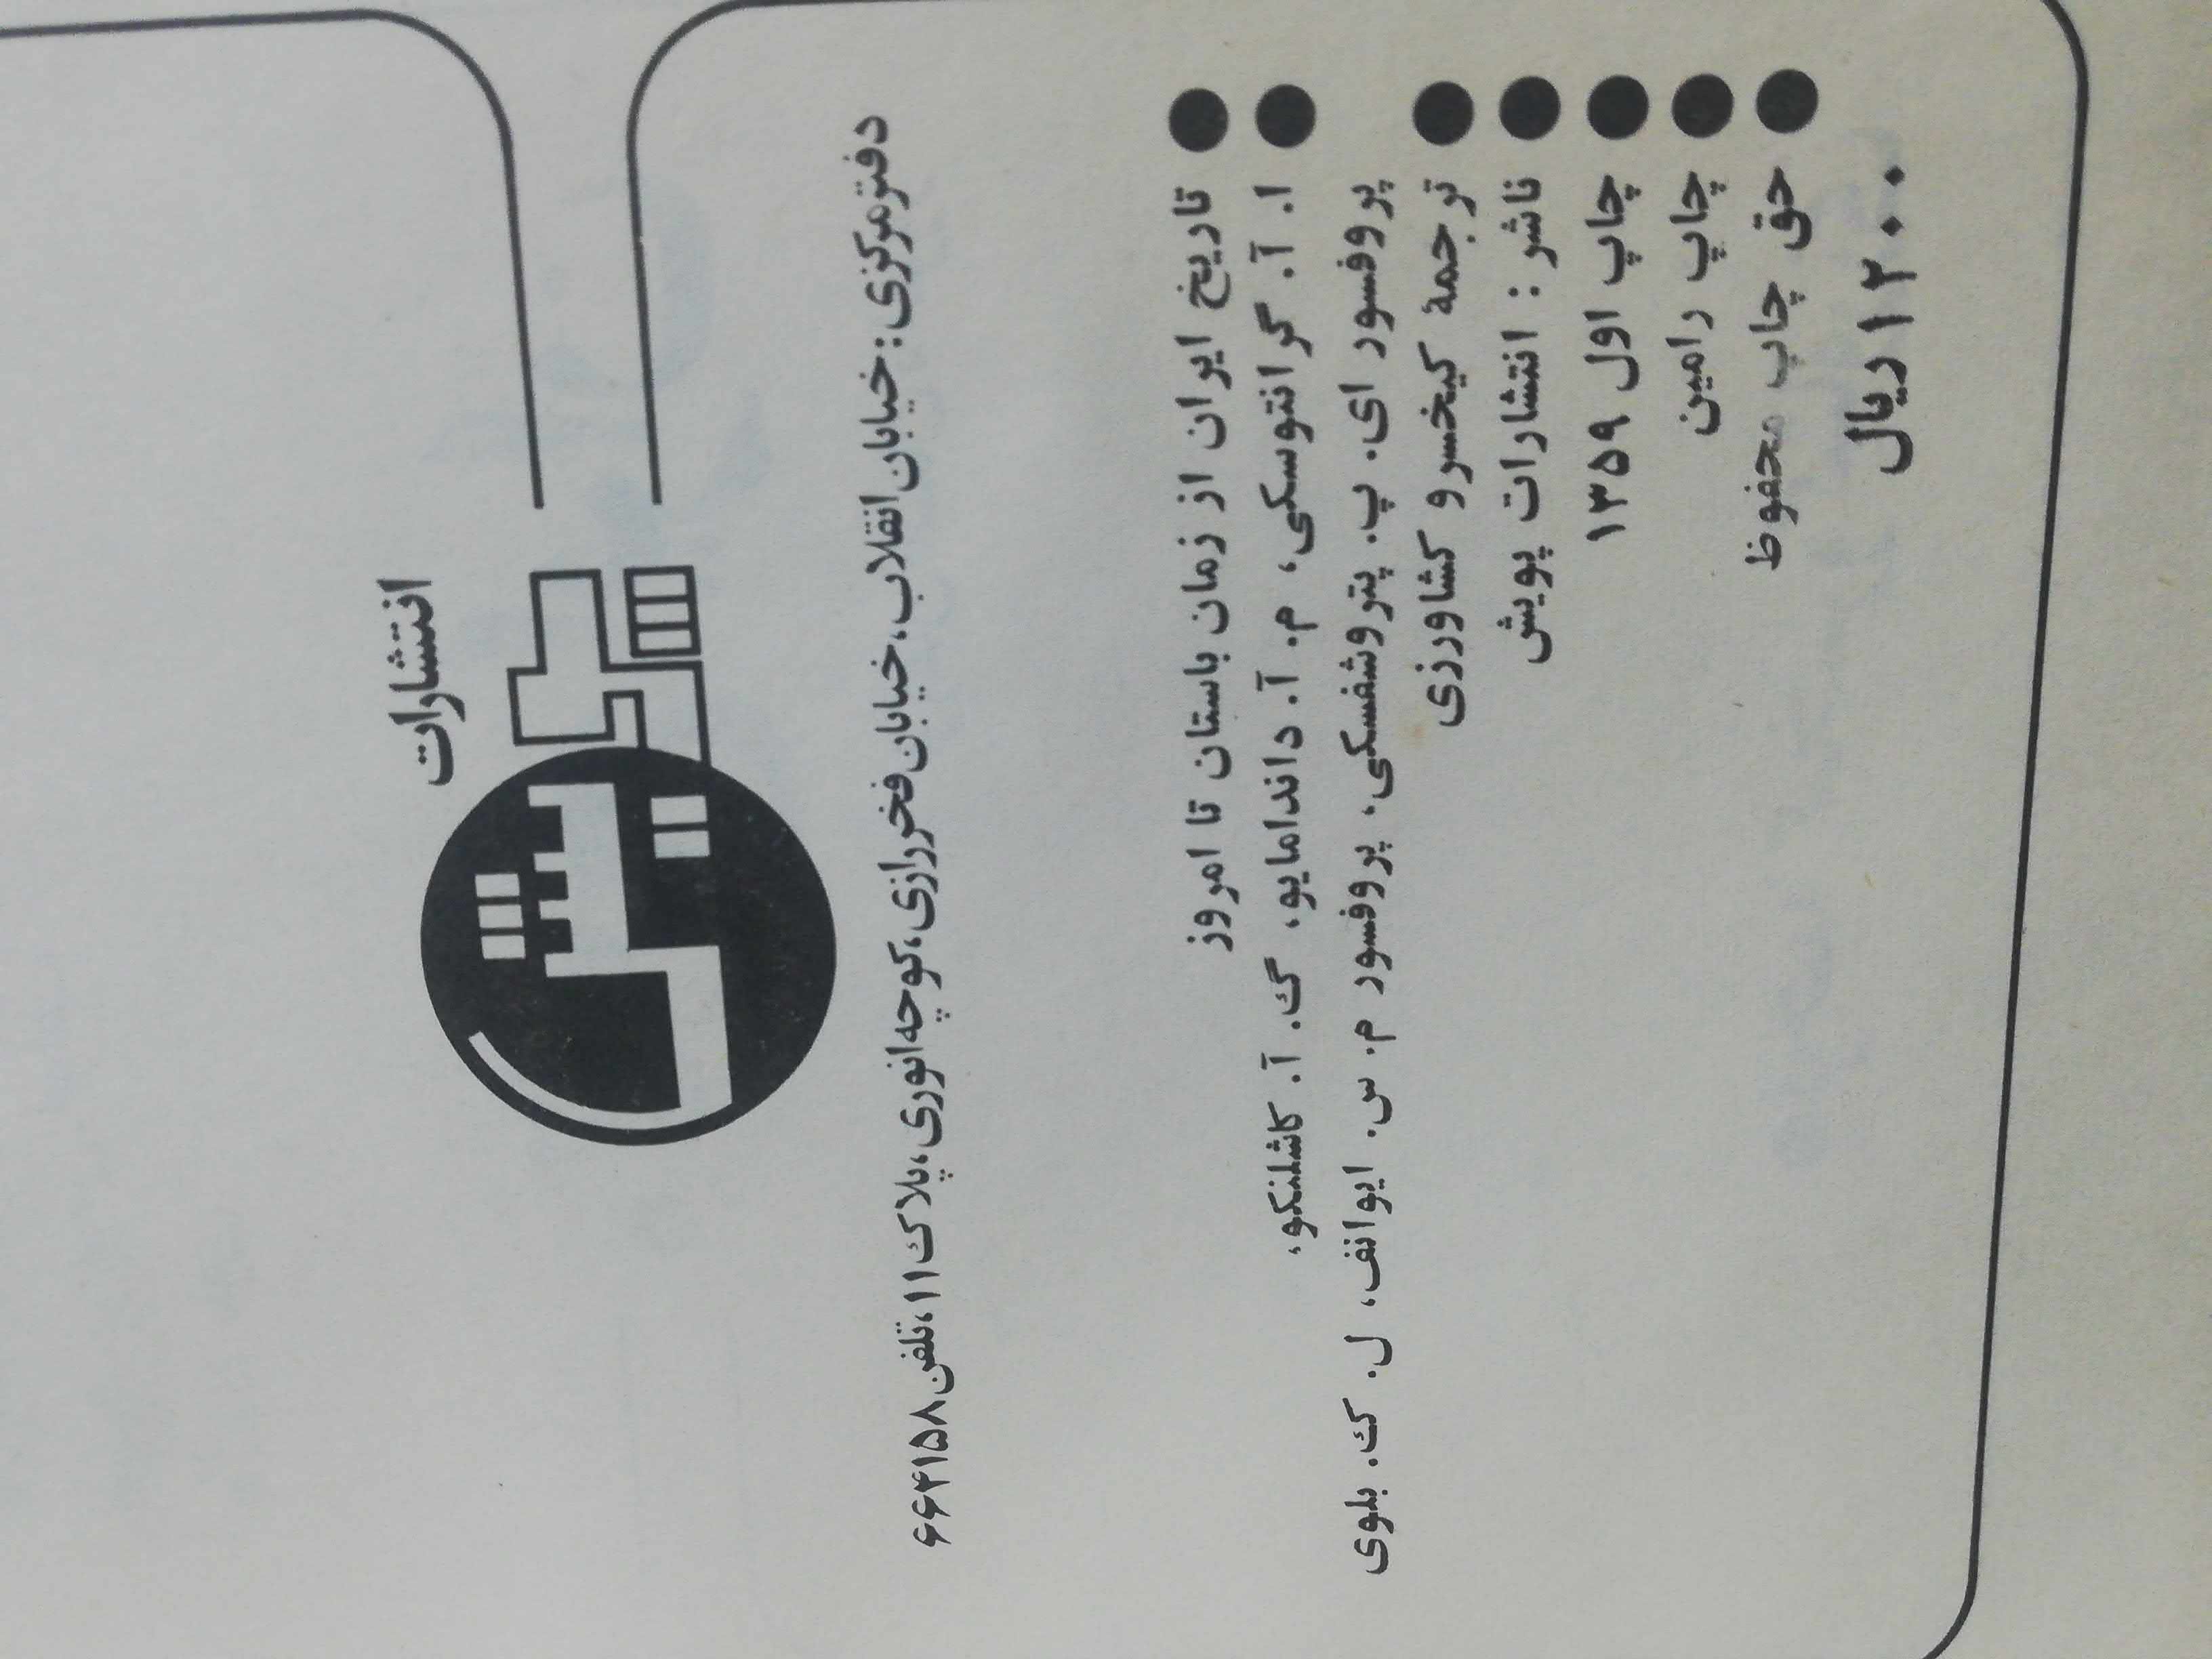 انتشارات
پویش
دفتر مرکزی: خیابان انقلاب، خیابان فخررازی، کوچه انوری، پلاک ۱۱، تلفن ۶۶۴۱۵۸
● تاریخ ایران از زمان باستان تا امروز
● ا. آ. گرانتوسکی، م. آ. داندامایو، گ. آ. کاشلنکو،
پروفسور ای. پ. پتروشفسکی، پروفسور م. س. ایوانف، ل. ک. بلوی
● ترجمهٔ کیخسرو کشاورزی
● ناشر: انتشارات پویش
● چاپ اول ۱۳۵۹
● چاپ رامین
● حق چاپ محفوظ
۱۲۰۰ ریال